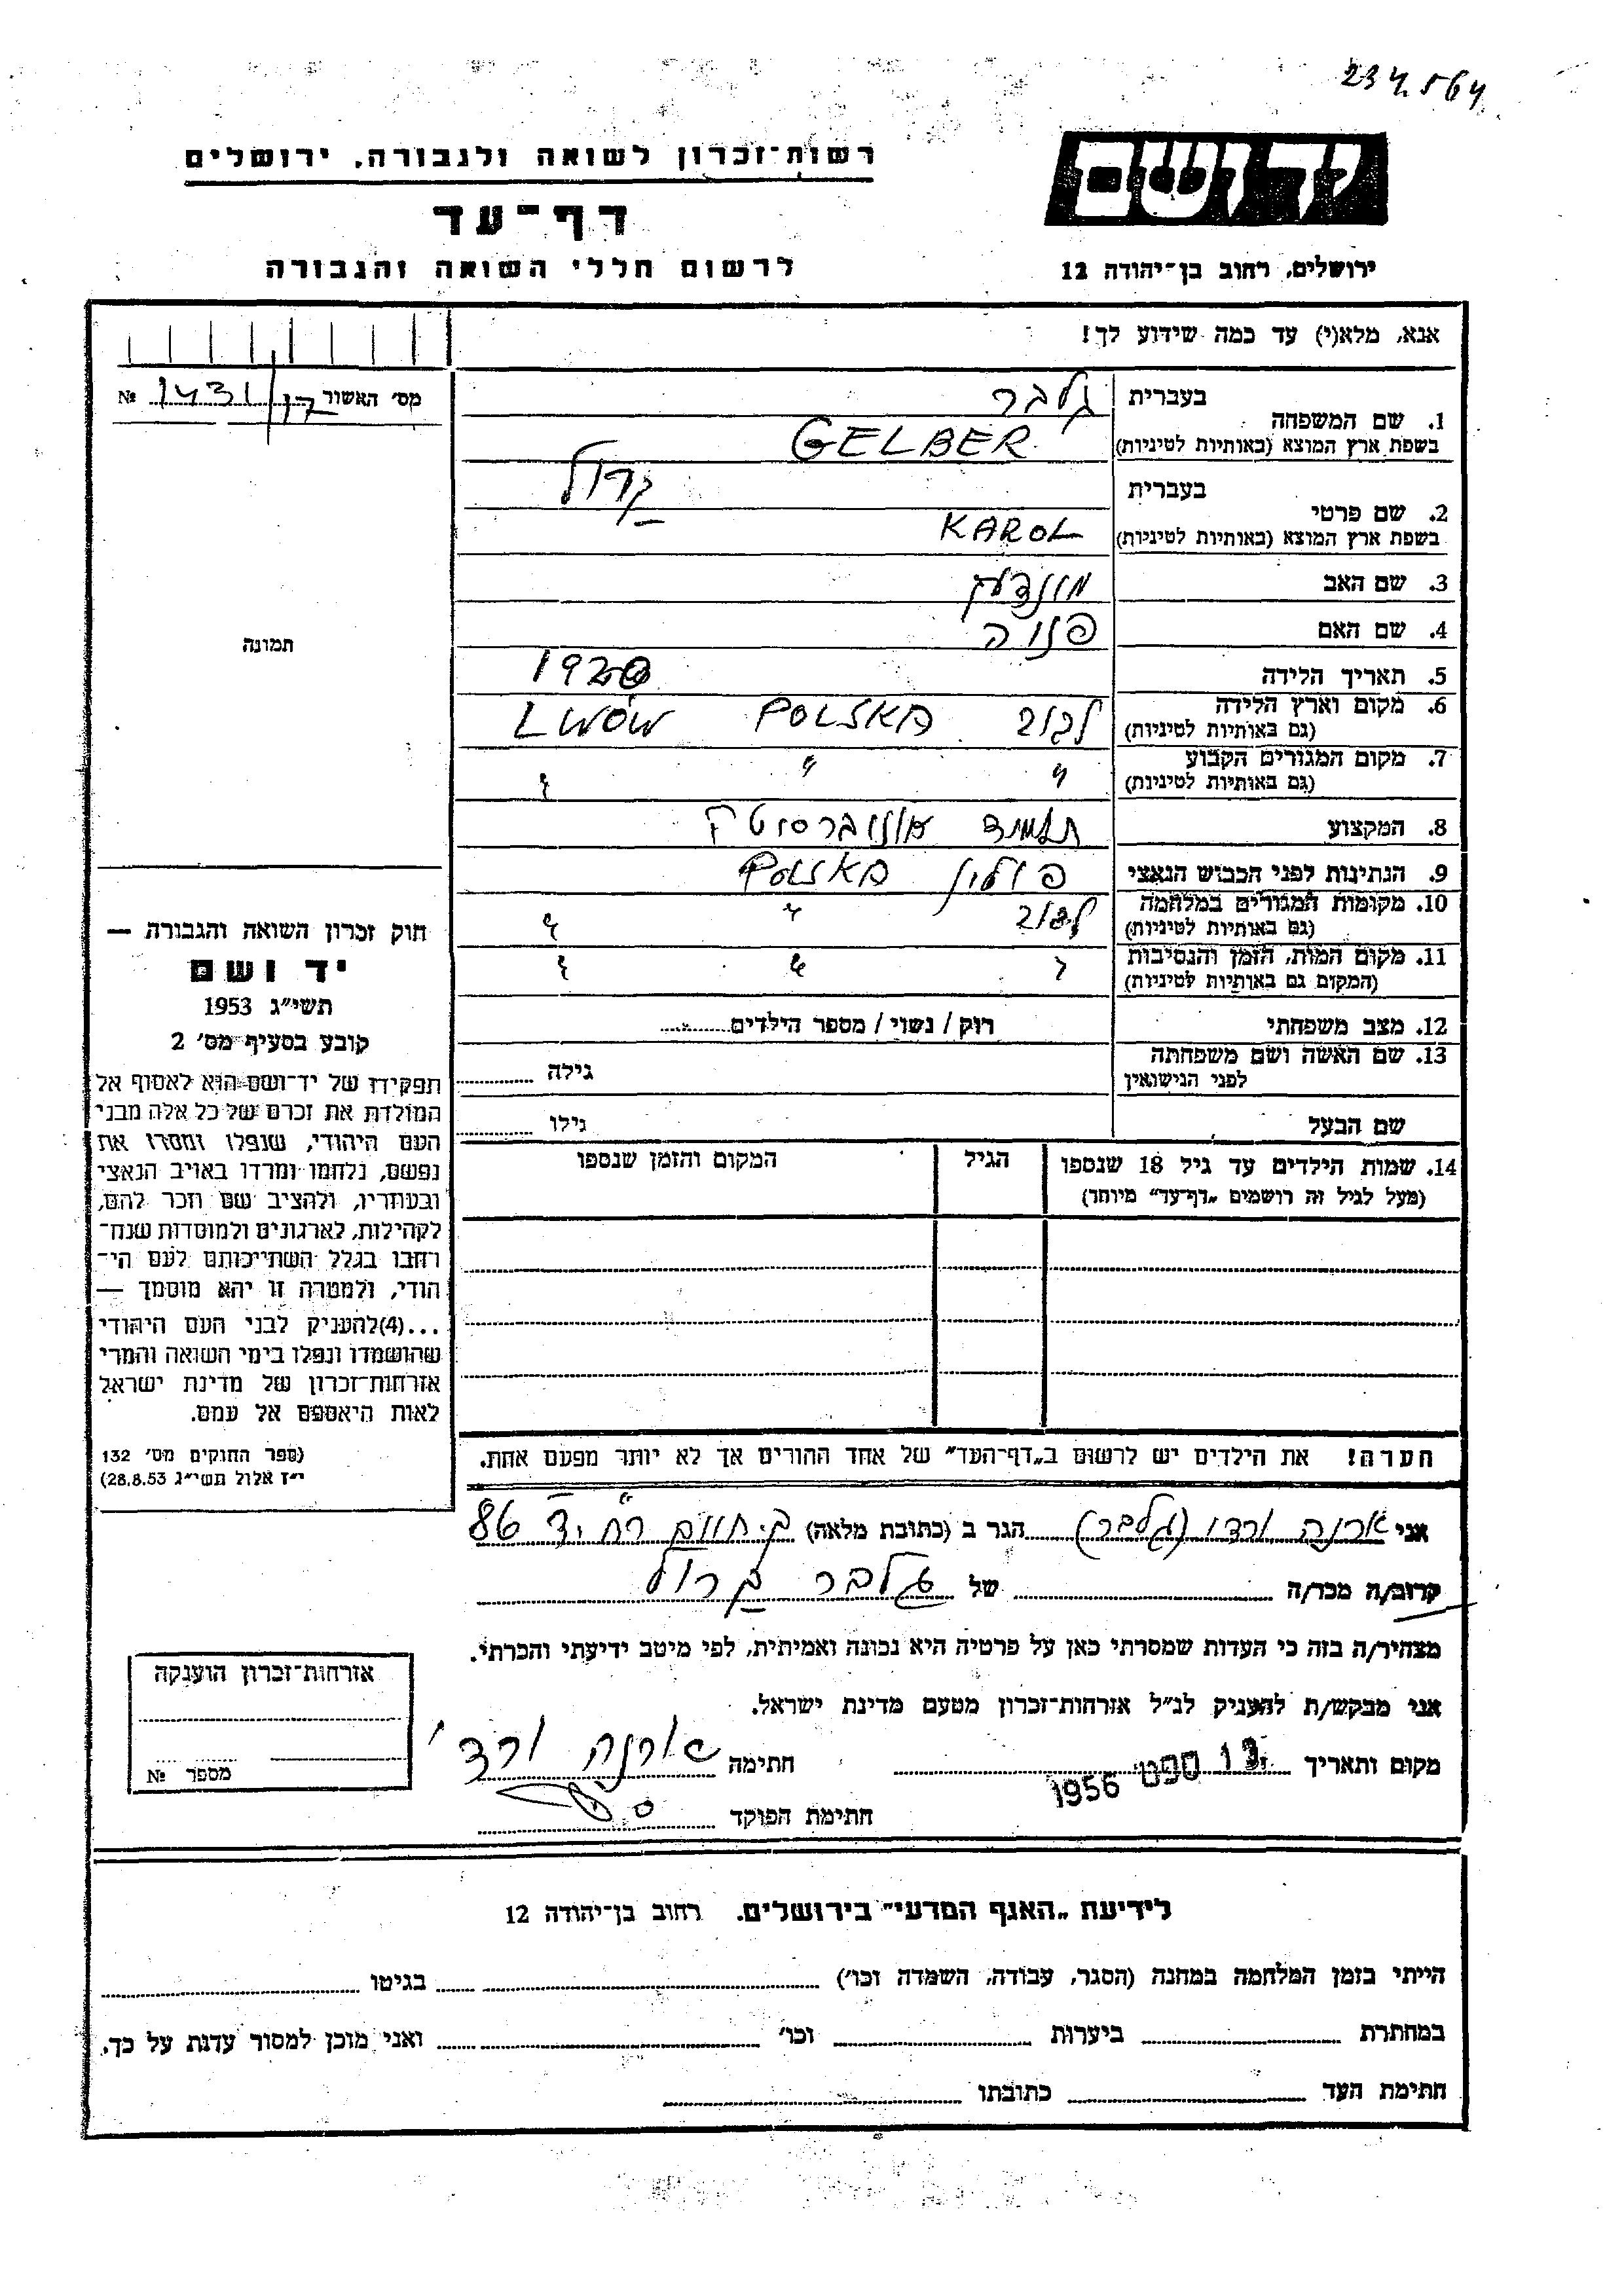 234.564
רשות־זכרון לשואה ולגבורה, ירושלים
יד ושם
דף־עד
לרשום חללי השואה והגבורה
ירושלים, רחוב בן־יהודה 12
אנא, מלא(י) עד כמה שידוע לך!
מס׳ האשור 1431 №
תמונה
1. שם המשפחה
בעברית גלבר
בשפת ארץ המוצא (באותיות לטיניות) GELBER
2. שם פרטי
בעברית קרול
בשפת ארץ המוצא (באותיות לטיניות) KAROL
3. שם האב
4. שם האם
5. תאריך הלידה
6. מקום וארץ הלידה לבוב POLSKA LWÓW
(גם באותיות לטיניות)
7. מקום המגורים הקבוע " " "
(גם באותיות לטיניות)
8. המקצוע תלמיד
9. הנתינות לפני הכבוש הנאצי פולין POLSKA
10. מקומות המגורים במלחמה לבוב " "
(גם באותיות לטיניות)
11. מקום המות, הזמן והנסיבות " " "
(המקום גם באותיות לטיניות)
12. מצב משפחתי רוק / נשוי / מספר הילדים
13. שם האשה ושם משפחתה גילה
לפני הנישואין
שם הבעל גילו
14. שמות הילדים עד גיל 18 שנספו הגיל המקום והזמן שנספו
(מעל לגיל זה רושמים „דף־עד” מיוחד)
הערה! את הילדים יש לרשום ב„דף־העד” של אחד ההורים אך לא יותר מפעם אחת.
חוק זכרון השואה והגבורה —
יד ושם
תשי״ג 1953
קובע בסעיף מס׳ 2
תפקידו של יד־ושם הוא לאסוף אל
המולדת את זכרם של כל אלה מבני
העם היהודי, שנפלו ומסרו את
נפשם, נלחמו ומרדו באויב הנאצי
ובעוזריו, ולהציב שם וזכר להם,
לקהילות, לארגונים ולמוסדות שנח־
רבו בגלל השתייכותם לעם הי־
הודי, ולמטרה זו יהא מוסמך —
...(4)להעניק לבני העם היהודי
שהושמדו ונפלו בימי השואה והמרי
אזרחות־זכרון של מדינת ישראל
לאות היאספם אל עמם.
(ספר החוקים מס׳ 132
י״ז אלול תשי״ג 28.8.53)
אני ארנה ורדי (גלבר) הגר ב (כתובת מלאה) 86
קרוב/ה מכר/ה של גלבר קרול
מצהיר/ה בזה כי העדות שמסרתי כאן על פרטיה היא נכונה ואמיתית, לפי מיטב ידיעתי והכרתי.
אני מבקש/ת להעניק לנ״ל אזרחות־זכרון מטעם מדינת ישראל.
מקום ותאריך 13 ספט 1956 חתימה ארנה ורדי
חתימת הפוקד
אזרחות־זכרון הוענקה
מספר №
לידיעת „האגף המדעי” בירושלים. רחוב בן־יהודה 12
הייתי בזמן המלחמה במחנה (הסגר, עבודה, השמדה וכו׳) בגיטו
במחתרת ביערות וכו׳ ואני מוכן למסור עדות על כך.
חתימת העד כתובתו